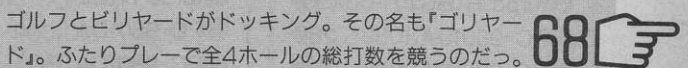 ゴルフとビリヤードがドッキング。その名も『ゴリヤー
ド』。ふたりプレーで全4ホールの総打数を競うのだっ。
68